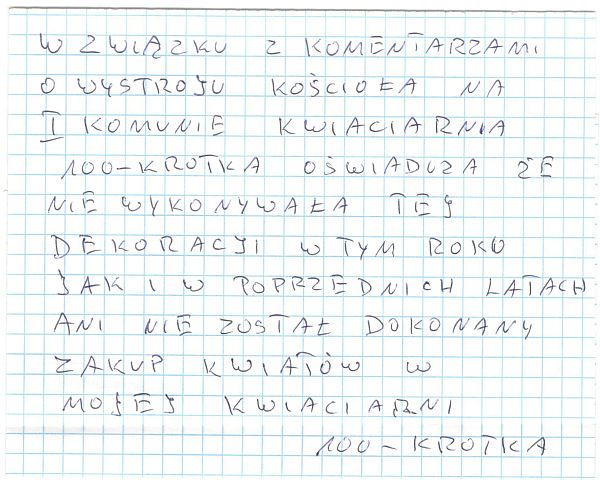 W ZWIĄZKU Z KOMENTARZAMI
O WYSTROJU KOŚCIOŁA NA
I KOMUNIE KWIACIARNIA
100-KROTKA OŚWIADCZA ŻE
NIE WYKONYWAŁA TEJ
DEKORACJI W TYM ROKU
JAK I W POPRZEDNICH LATACH
ANI NIE ZOSTAŁ DOKONANY
ZAKUP KWIATÓW W
MOJEJ KWIACIARNI
100-KROTKA